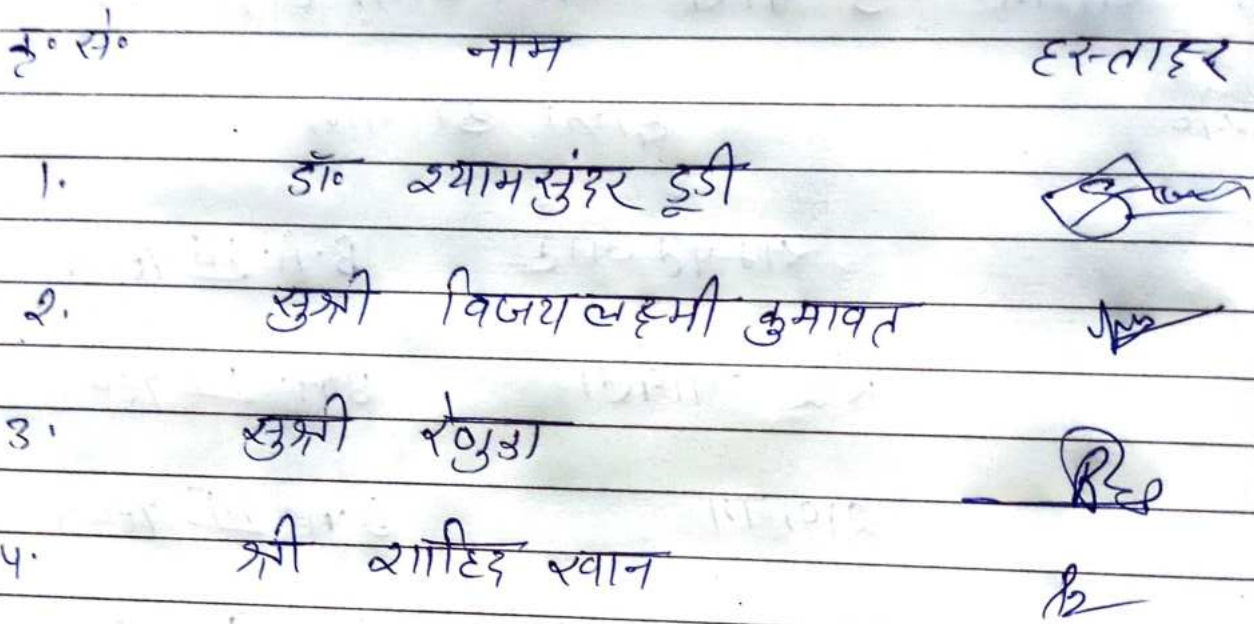 क्र० सं० नाम हस्ताक्षर
1. डॉ० श्याम सुंदर डूडी
2. सुश्री विजय लक्ष्मी कुमावत
3. सुश्री रेणुका
4. श्री शाहिद खान